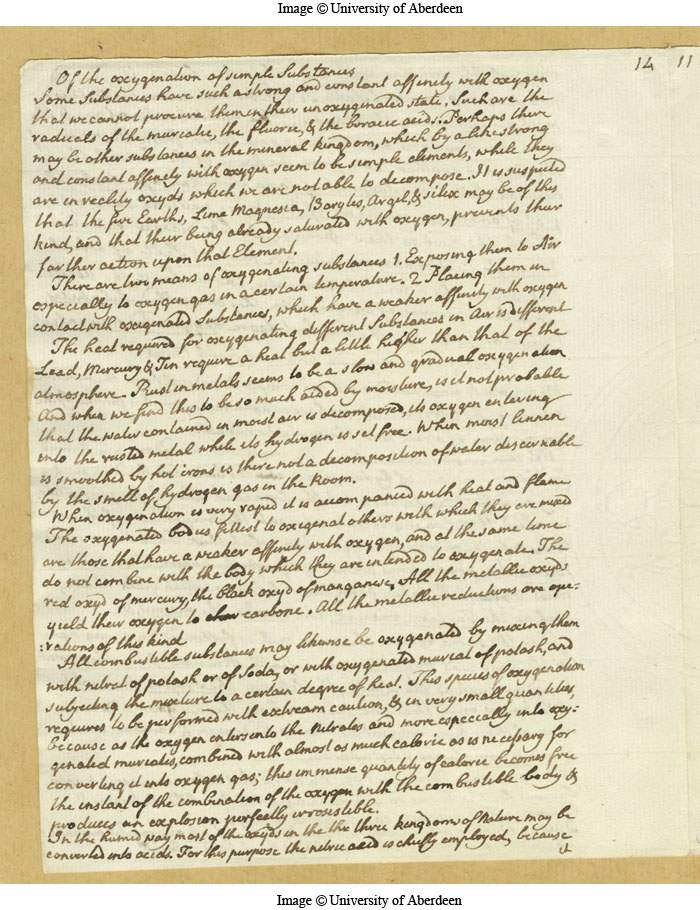 Image © University of Aberdeen
14 11
Of the oxygenation of simple Substances
Some Substances have such a strong and constant affinety with oxygen
that we cannot procure them in their unoxygenated state. Such are the
radicals of the muriatic, the fluoric, & the boracic acids. Perhaps there
may be other substances in the mineral kingdom, which by a like strong
and constant affinety with oxygen seem to be simple elements, while they
are in reality oxyds which we are not able to decompose. It is suspected
that the five Earths, Lime Magnesia, Barytes, Argil, & silex may be of this
kind, and that their being already saturated with oxygen, prevents their
farther action upon that Element.
There are two means of oxygenating substances 1. Exposing them to Air
especially to oxygen gas in a certain temperature. 2 Placing them in
contact with oxigenated Substances, which have a weaker affinity with oxygen
The heat required for oxygenating different Substances in Air is different
Lead, Mercury & Tin require a heat but a little higher than that of the
atmosphere. Rust in metals seems to be a slow and gradual oxygenation
And when we find this to be so much aided by moisture, is it not probable
that the water contained in moist air is decomposed, its oxygen entering
into the rusted metal while its hydrogen is set free. When moist linnen
is smoothed by hot irons is there not a decomposition of water discernable
by the smell of hydrogen gas in the Room.
When oxygenation is very rapid it is accompanied with heat and flame
The oxygenated bodies fittest to oxigenat others with which they are mixed
are those that have a weaker affinity with oxygen, and at the same time
do not combine with the body which they are intended to oxygenate. The
red oxyd of mercury, the black oxyd of manganese. All the metallic oxyds
yield their oxygen to char carbone. All the metallic reductions are ope:
:rations of this kind
All combustible substances may likewise be oxygenated by mixing them
with nitret of potash or of Soda, or with oxygenated muriat of potash, and
subjecting the mixture to a certain degree of heat. This species of oxygenation
requires to be performed with extream caution, & in very small quantities,
because as the oxygen enters into the nitrates and more especially into oxy:
genated muriates, combined with almost as much caloric as is necessary for
converting it into oxygen gas; this immense quantity of caloric becomes free
the instant of the combination of the oxygen with the combustible body &
produces an explosion perfectly irresistible.
In the humid way most of the oxyds in the thr three kingdoms of Nature may be
converted into acids. For this purpose the nitric acid is chiefly employed, because
it
Image © University of Aberdeen